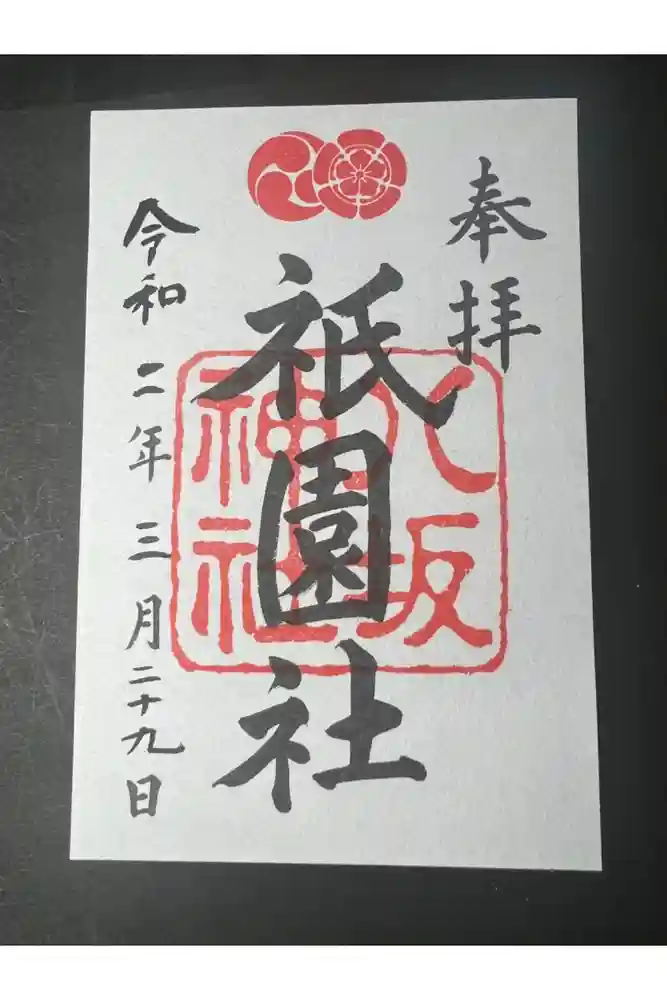 奉拝
祇園社
八坂
神社
令和二年三月二十九日